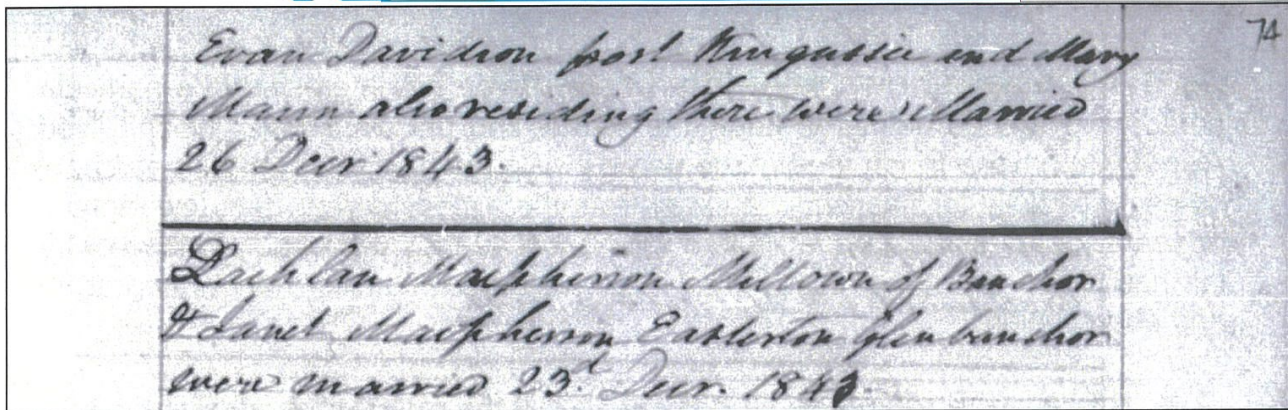 74
Evan Davidson post Kingussie and Mary
Mann also residing there were Married
26 Decr 1843.
Lachlan Macpherson Milltown of Banchor
& Janet Macpherson Easterton Glenbanchor
were married 23d Decr. 1843.